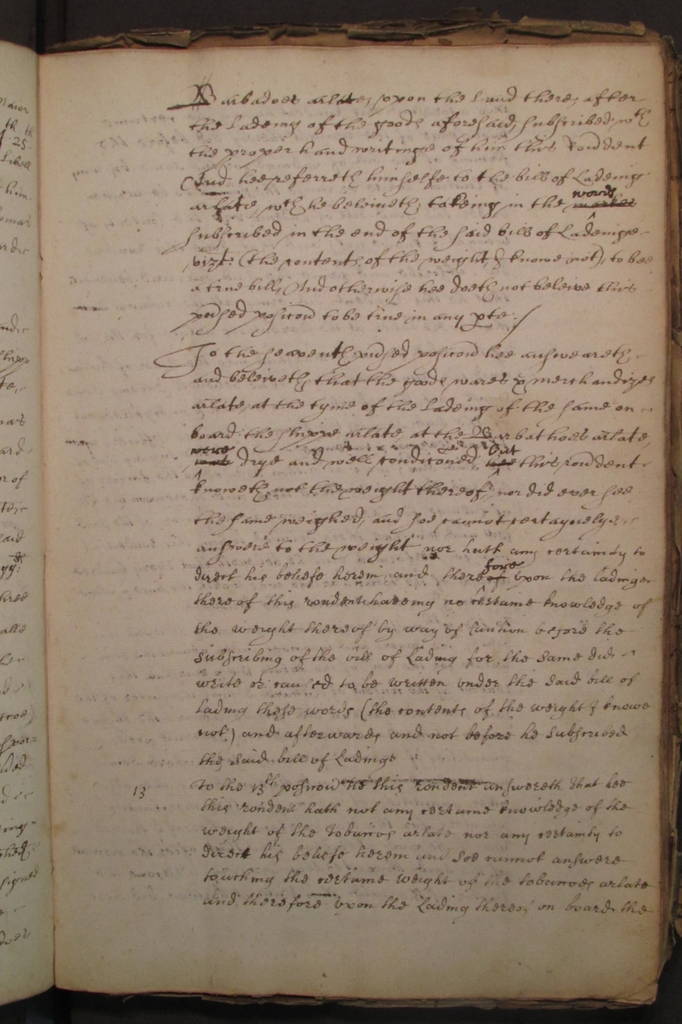 Barbadoes arlate, upon the Land there, after
the Lading of the goods aforesaid, subscribed, wth
the proper handwritinge of him this Rondent
And hee referreth himselfe to the bills of Ladeing
arlate, wch he beleiveth, takeing in the words
subscribed in the end of the said bills of Ladeinge
vizt: (the contents of the weight I knowe not), to bee
a true bill, And otherwise hee doeth not beleive this
posicon to be true in any pte./
To the seaventh posicon hee answeareth
and beleiveth that the goods wares & merchandizes
arlate, at the tyme of the Ladeing of the same on
board the shippe arlate, at the Barbathoes arlate,
were drye and well conditoned, but this rondent
knoweth not the weight thereof, nor did ever see
the same weighed, and soe cannot certaynely
answere to the weight nor hath any certainty to
direct his beleife herein and therefore upon the ladinge
thereof this rondent haveing no certaine knowledge of
the weight thereof by way of Caution before the
subscribing of the bill of Lading for the same did
write or caused to be written under the said bill of
lading these words (the contents of the weight I knowe
not) and afterwards and not before he subscribed
the said bill of Ladinge
13 To the 13th posicon this rondent answereth that hee
this rondent hath not any certaine knowledge of the
weight of the tobaccos arlate nor any certainty to
direct his beleife herein and soe cannot answere
touching the certaine weight of the tobaccoes arlate
and therefore upon the Lading thereof on board the